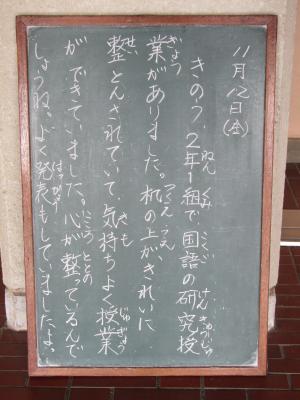 11月12日(金)
きのう、2年1組で、国語の研究授
業がありました。机の上がきれいに
整とんされていて、気持ちよく授業
ができていました。心が整っているんで
しょうね。よく発表もしていましたよ。